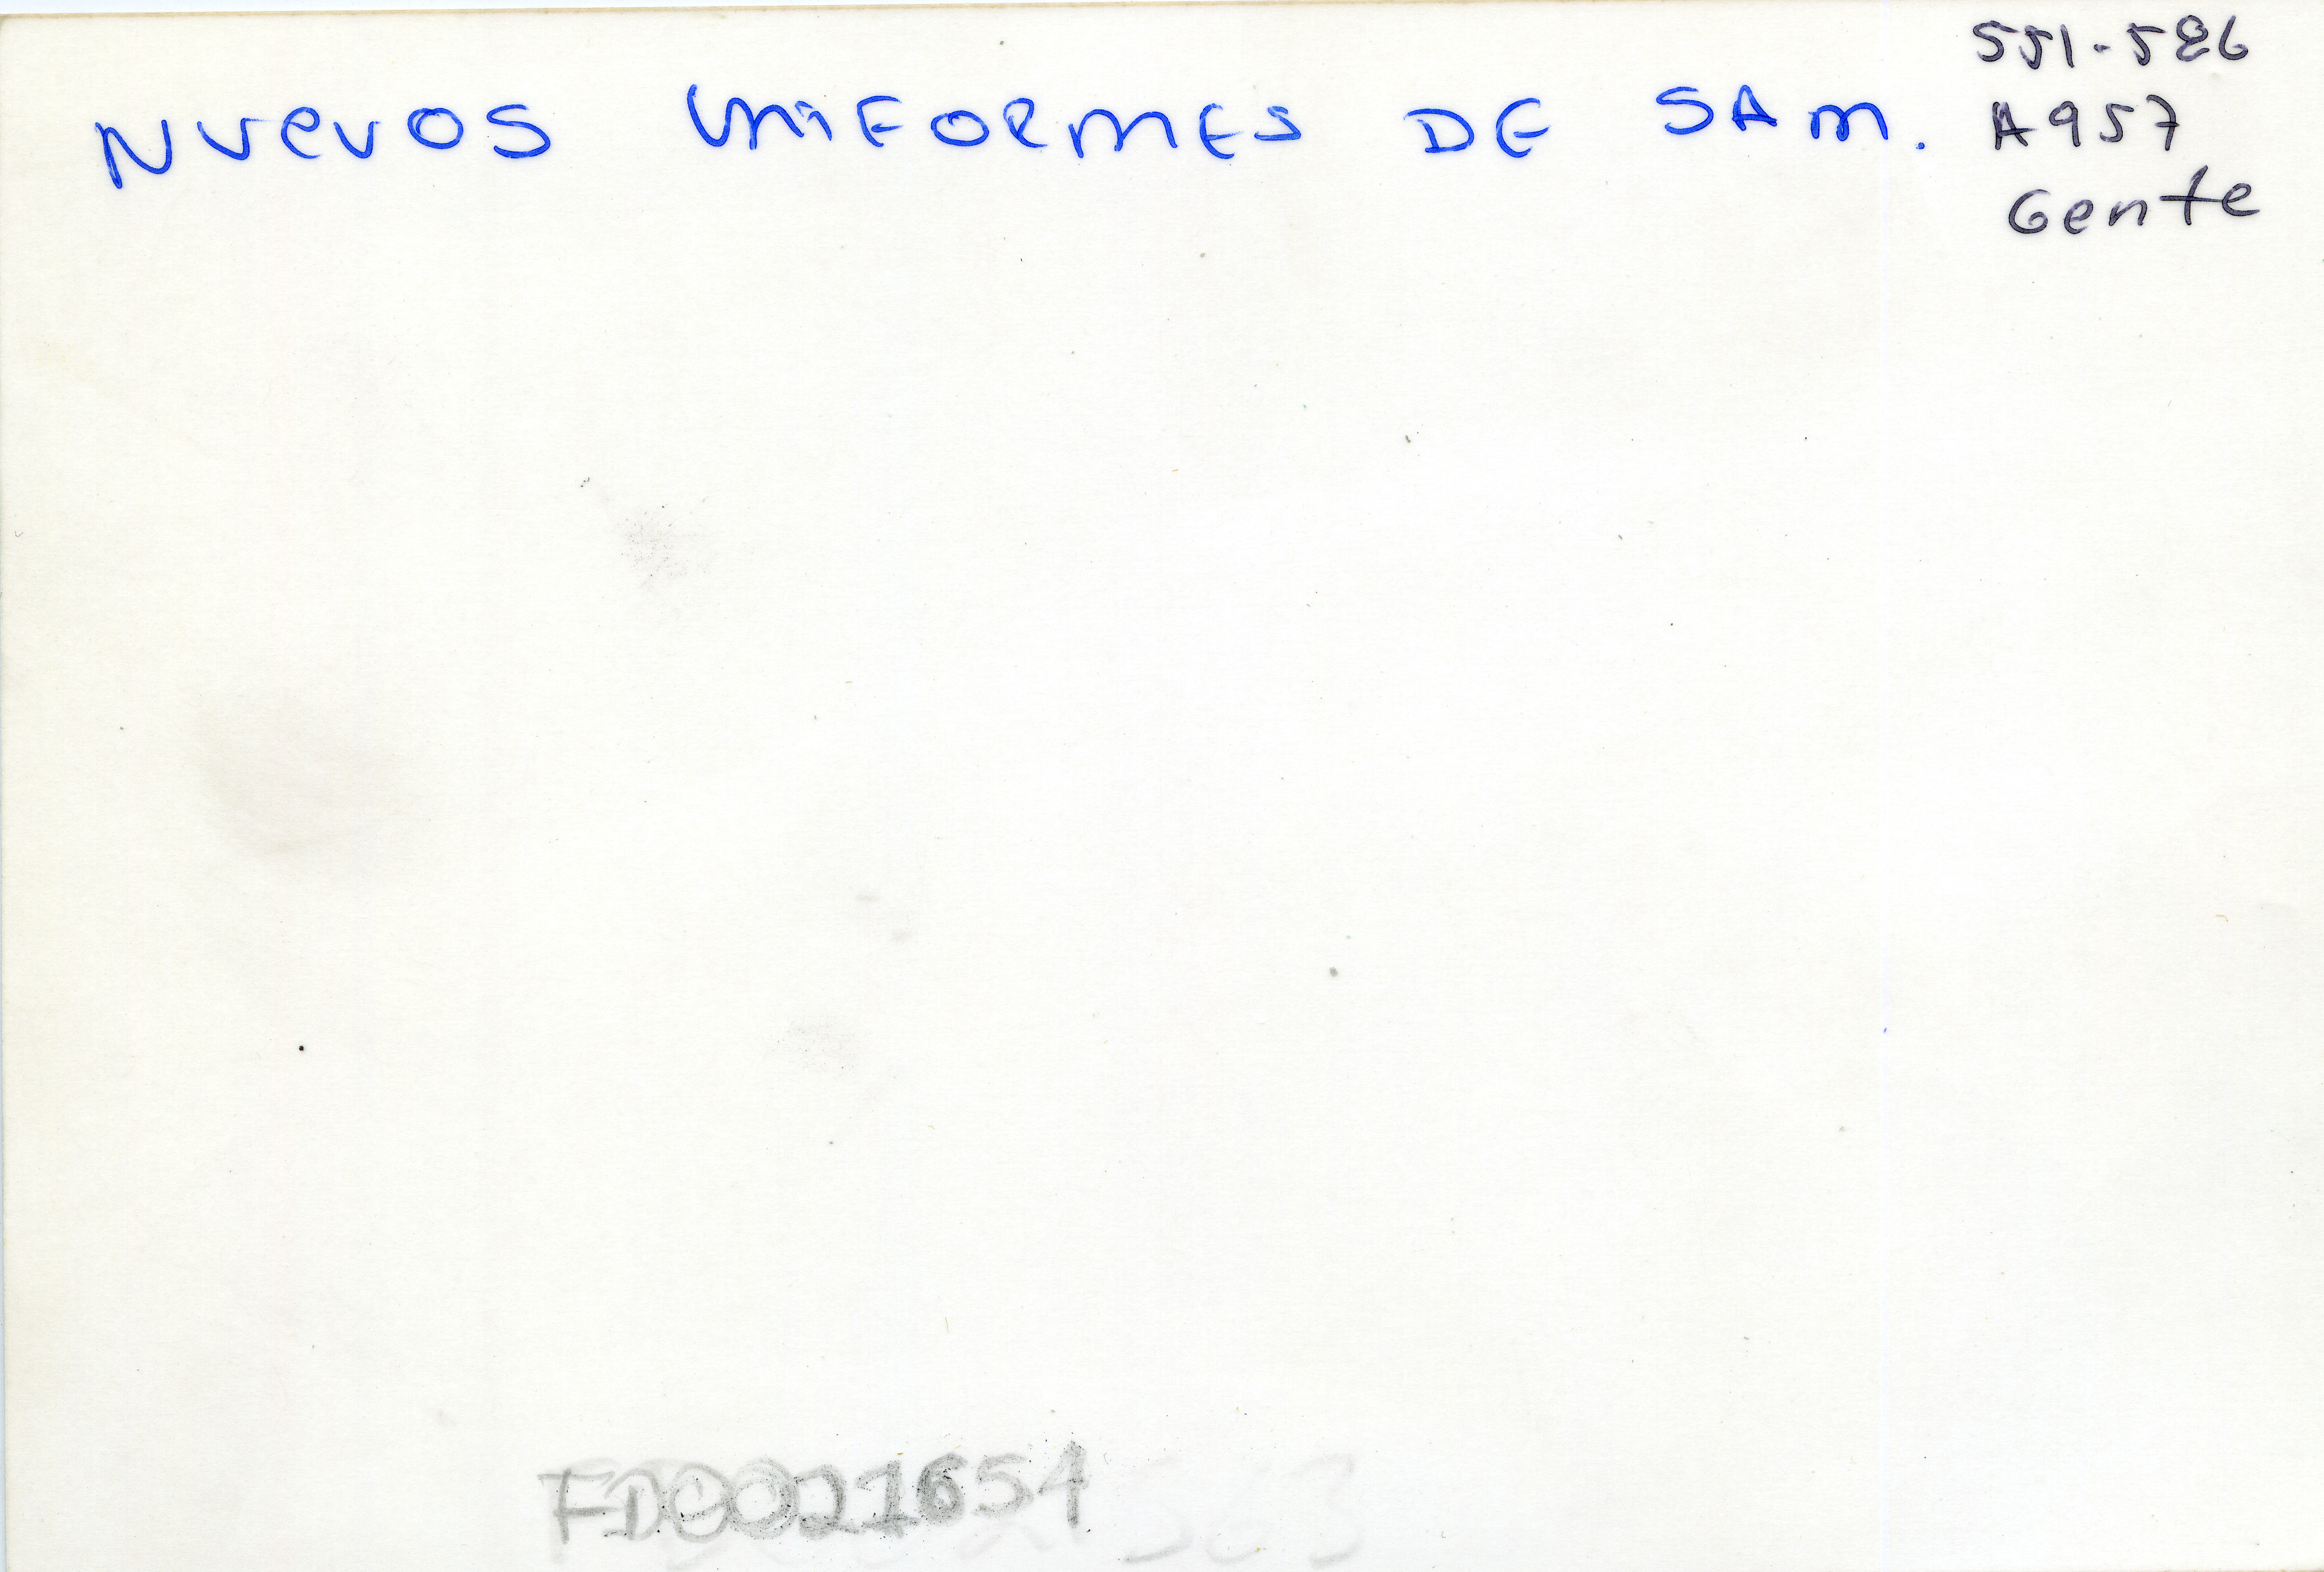 NUEVOS UNIFORMES DE SAM.
551-586
A957
Gente
FD0021654